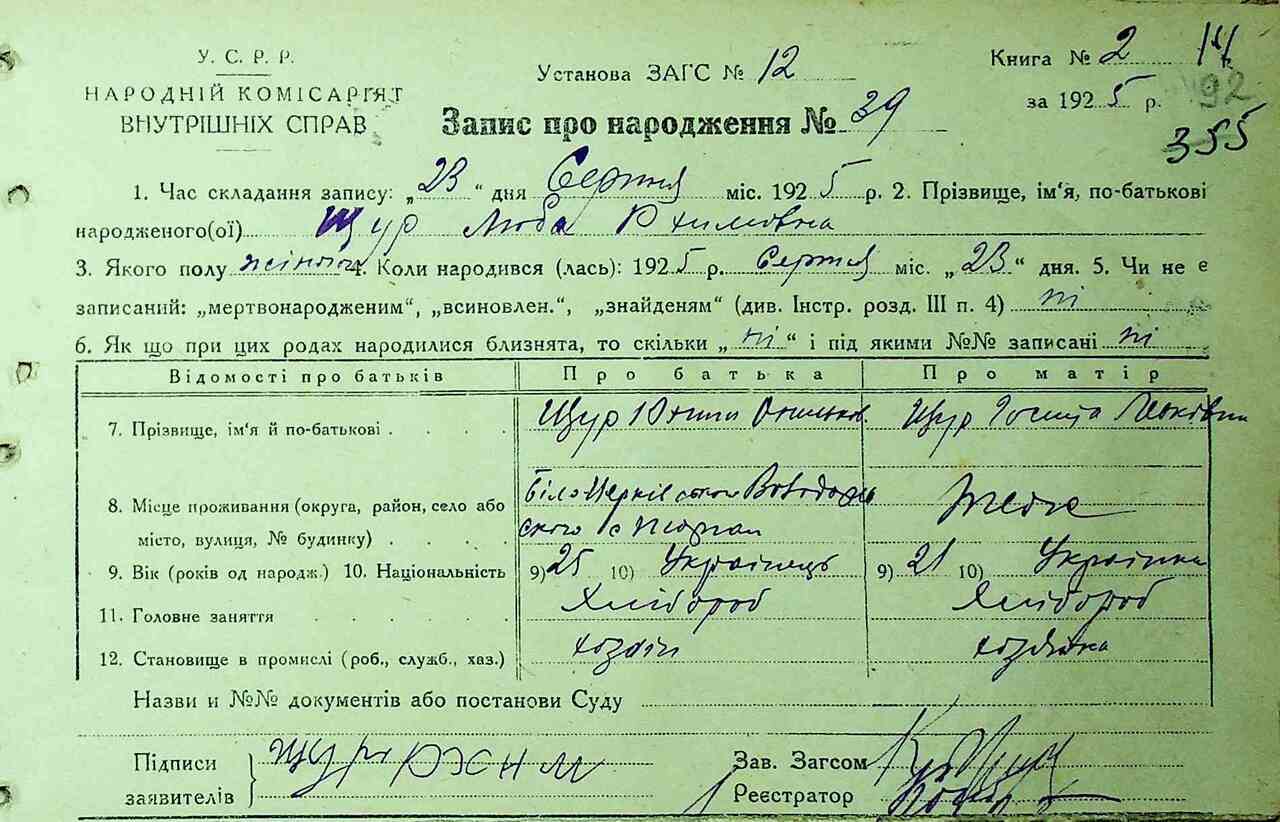 У. С. Р. Р.
НАРОДНІЙ КОМІСАРІЯТ
ВНУТРІШНІХ СПРАВ
Установа ЗАГС № 12
Книга № 2 14
за 1925 р. 92
355
Запис про народження № 39
1. Час складання запису: „23 “ дня Серпня міс. 1925 р. 2. Прізвище, ім‘я, по-батькові
народженого(ої) Щур Люба Юхимовна
3. Якого полу жіночого 4. Коли народився (лась): 1925 р. Серпня міс. „23“ дня. 5. Чи не є
записаний: „мертвонародженим“, „всиновлен.“, „знайденям“ (див. Інстр. розд. III п. 4) ні
6. Як що при цих родах народилися близнята, то скільки „ ні “ і під якими №№ записані ні
Відомості про батьків Про батька Про матір
7. Прізвище, ім‘я й по-батькові . . . . Щур Юхим Щур
8. Місце проживання (округа, район, село або
місто, вулиця, № будинку) . . . . Біло Церків
9. Вік (років од народж.) 10. Національність 9) 25 10) Українець 9) 21 10) Українка
11. Головне заняття . . . . . . Хлібороб Хлібороб
12. Становище в промислі (роб., служб., хаз.) хозяїн хозяйка
Назви и №№ документів або постанови Суду
Підписи
заявителів Щур Юхим
Зав. Загсом
Реєстратор